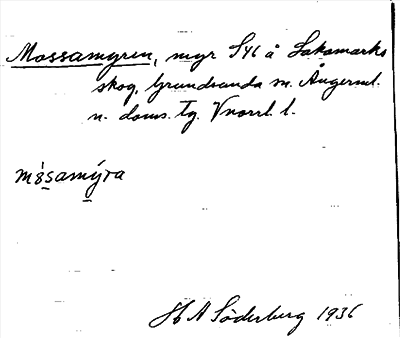 Mossamyren, myr S41 å Lakamarks
skog, Grundsunda sn. Ångerml.
n. doms. tg. Vnorrl. l.
mòsamýra
H A Söderberg 1936